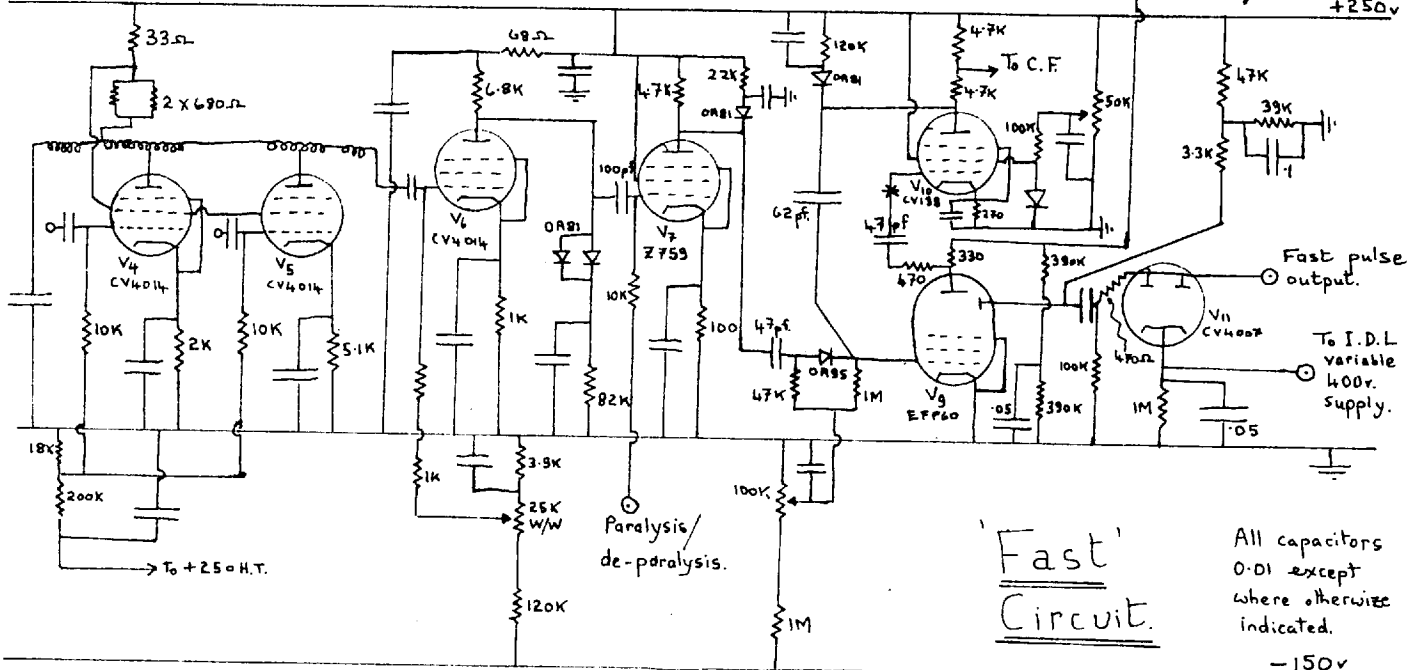 +250v
33Ω
2 X 680Ω
68Ω
6.8K
4.7K
22K
OA81
120K
OA81
4.7K
To C.F.
4.7K
50K
100K
47K
39K
3.3K
.1
V4
CV4014
V5
CV4014
V6
CV4014
100pf
V7
Z759
OA81
62pf.
V10
CV138
270
47pf
330
470
390K
Fast pulse
output.
V11
CV4007
470Ω
To I.D.L
variable
400v.
Supply.
10K
2K
10K
5.1K
1K
10K
100
82K
47pf.
OA95
47K
1M
V9
EFP60
.05
390K
100K
1M
.05
18K
200K
To +250H.T.
1K
3.9K
25K
W/W
120K
Paralysis/
de-paralysis.
100K
1M
'Fast'
Circuit.
All capacitors
0.01 except
where otherwize
indicated.
-150v